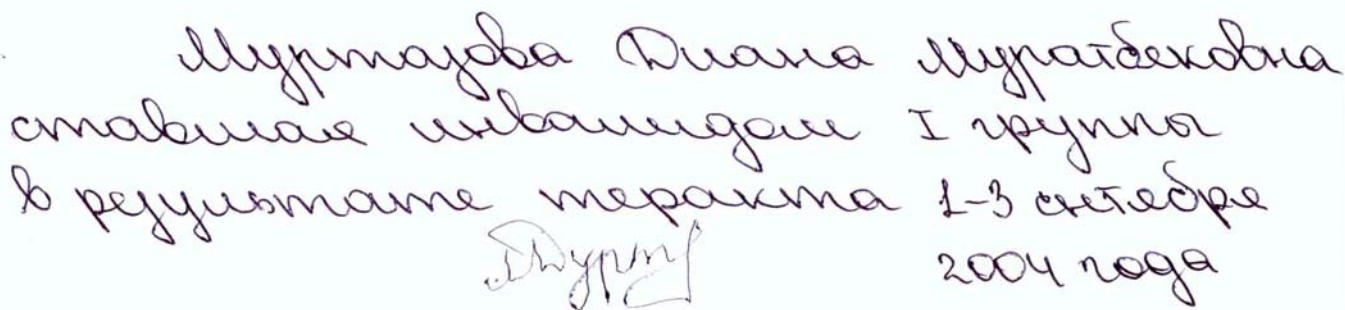 Муртазова Диана Муратбековна
ставшая инвалидом I группы
в результате теракта 1-3 сентября
2004 года